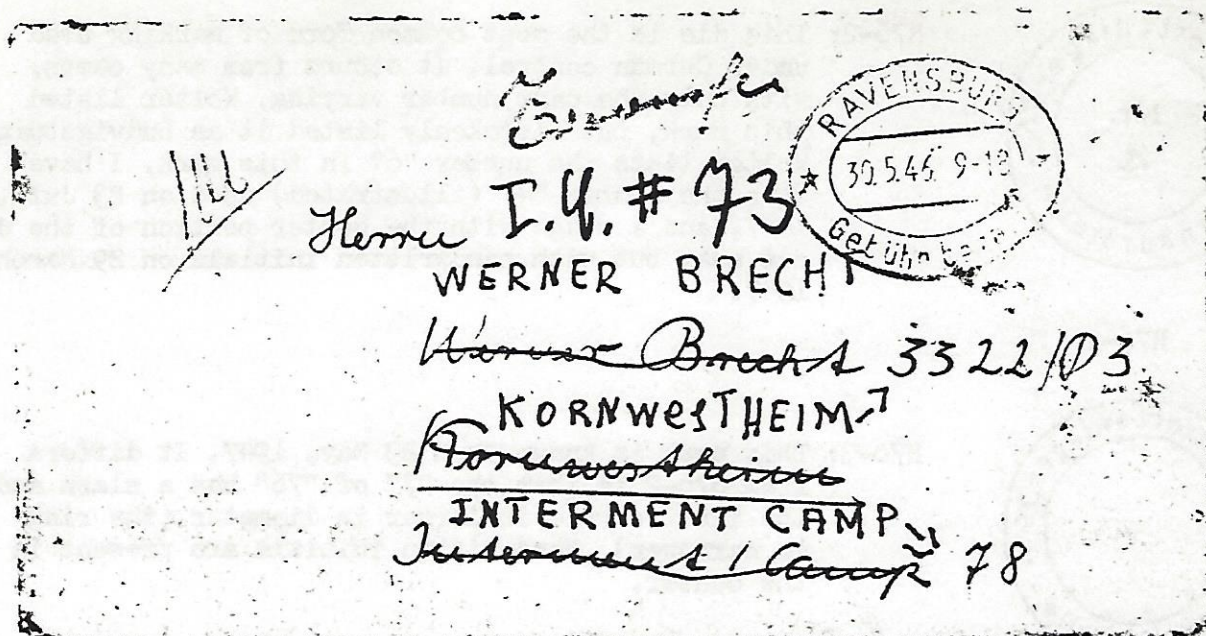 RAVENSBURG
30.5.46. 9-10
Gebühr
I4. # 73
Herrn
WERNER BRECHT
Werner Brecht 3322/D3
KORNWESTHEIM
Kornwestheim
INTERMENT CAMP
Interment Camp 78